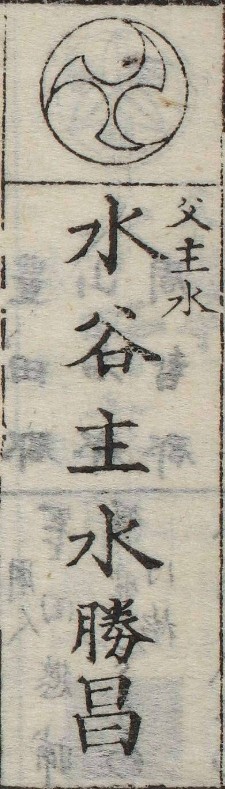 父主水
水谷主水勝昌